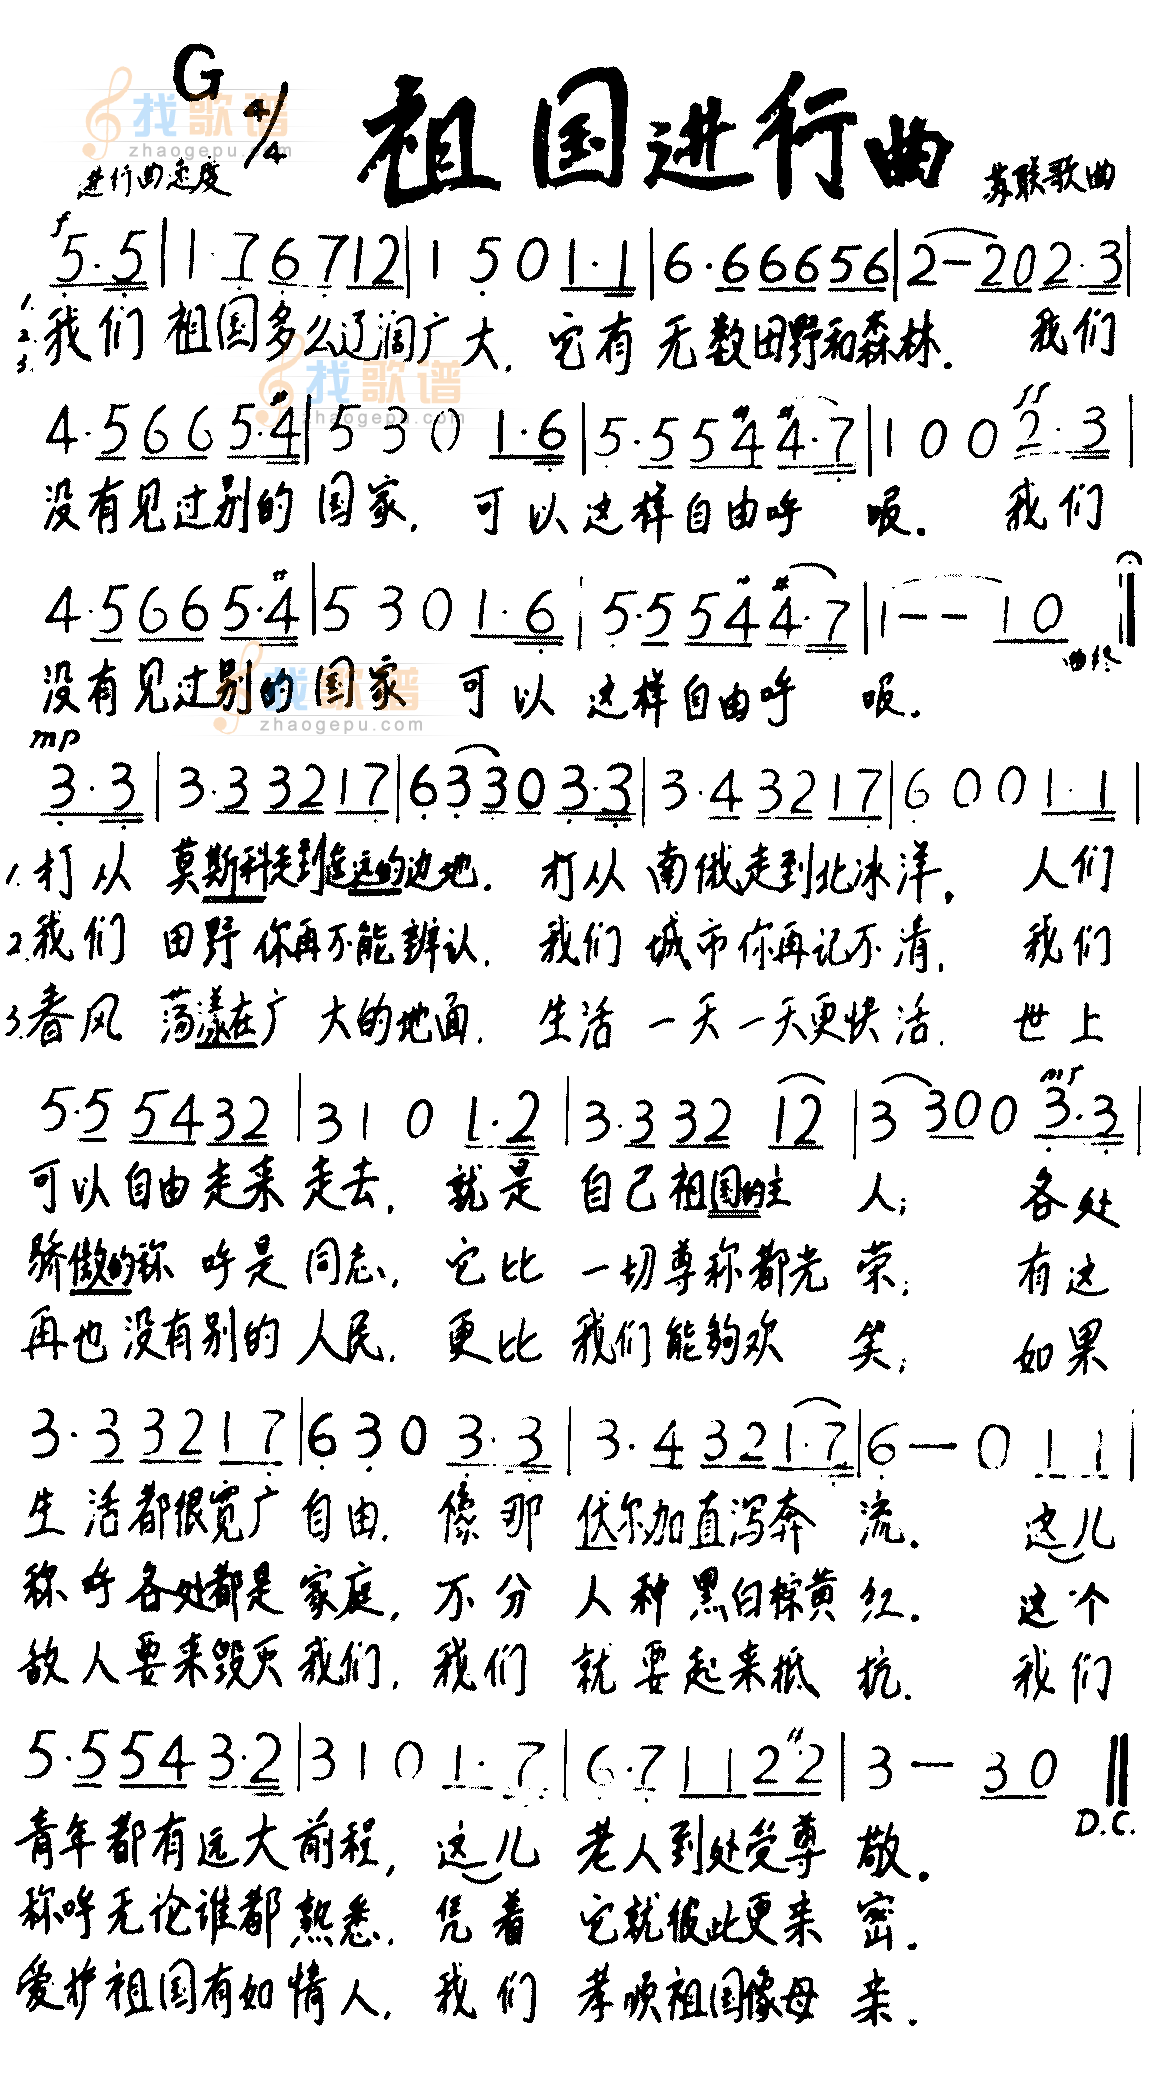 G 4/4 祖国进行曲
找歌谱
zhaogepu.com
进行曲速度 苏联歌曲
f
5.5 | 1.76712 | 1 5 0 1.1 | 6.666656 | 2-202.3 |
1.
2. 我们 祖国多么辽阔广大. 它有 无数田野和森林. 我们
3.
找歌谱
zhaogepu.com
4.5665.#4 | 5 3 0 1.6 | 5.55#4#4.7 | 1 0 0 2.3 |
没有见过别的 国家. 可以这样自由呼 吸. 我们
4.5665.#4 | 5 3 0 1.6 | 5.55#4#4.7 | 1-- 10
曲终
没有见过别的国家 可以 这样自由呼 吸.
找歌谱
zhaogepu.com
mp
3.3 | 3.33217 | 63303.3 | 3.43217 | 6 0 0 1.1 |
1.打从 莫斯科走到遥远的边地. 打从 南俄走到北冰洋. 人们
2.我们 田野你再不能辨认. 我们 城市你再记不清. 我们
3.春风 荡漾在广大的地面. 生活一天一天更快活. 世上
mf
5.55432 | 3 1 0 1.2 | 3.332 12 | 3 300 3.3 |
可以自由走来走去, 就是 自己祖国的主 人; 各处
骄傲的称呼是同志, 它比 一切尊称都光荣; 有这
再也没有别的人民, 更比 我们能够欢 笑; 如果
3.33217 | 630 3.3 | 3.4321.7 | 6-0 1 1 |
生活都很宽广自由. 像那 伏尔加直泻奔 流. 这儿
称呼各处都是家庭, 不分 人种黑白棕黄红. 这个
敌人要来毁灭我们, 我们 就要起来抵 抗. 我们
5.5543.2 | 3 1 0 1.7 | 6.7 1122 | 3- 30
D.C.
青年都有远大前程, 这儿 老人到处受尊敬.
称呼无论谁都熟悉. 凭着 它就彼此更来密.
爱护祖国有如情人, 我们 孝顺祖国像母亲.